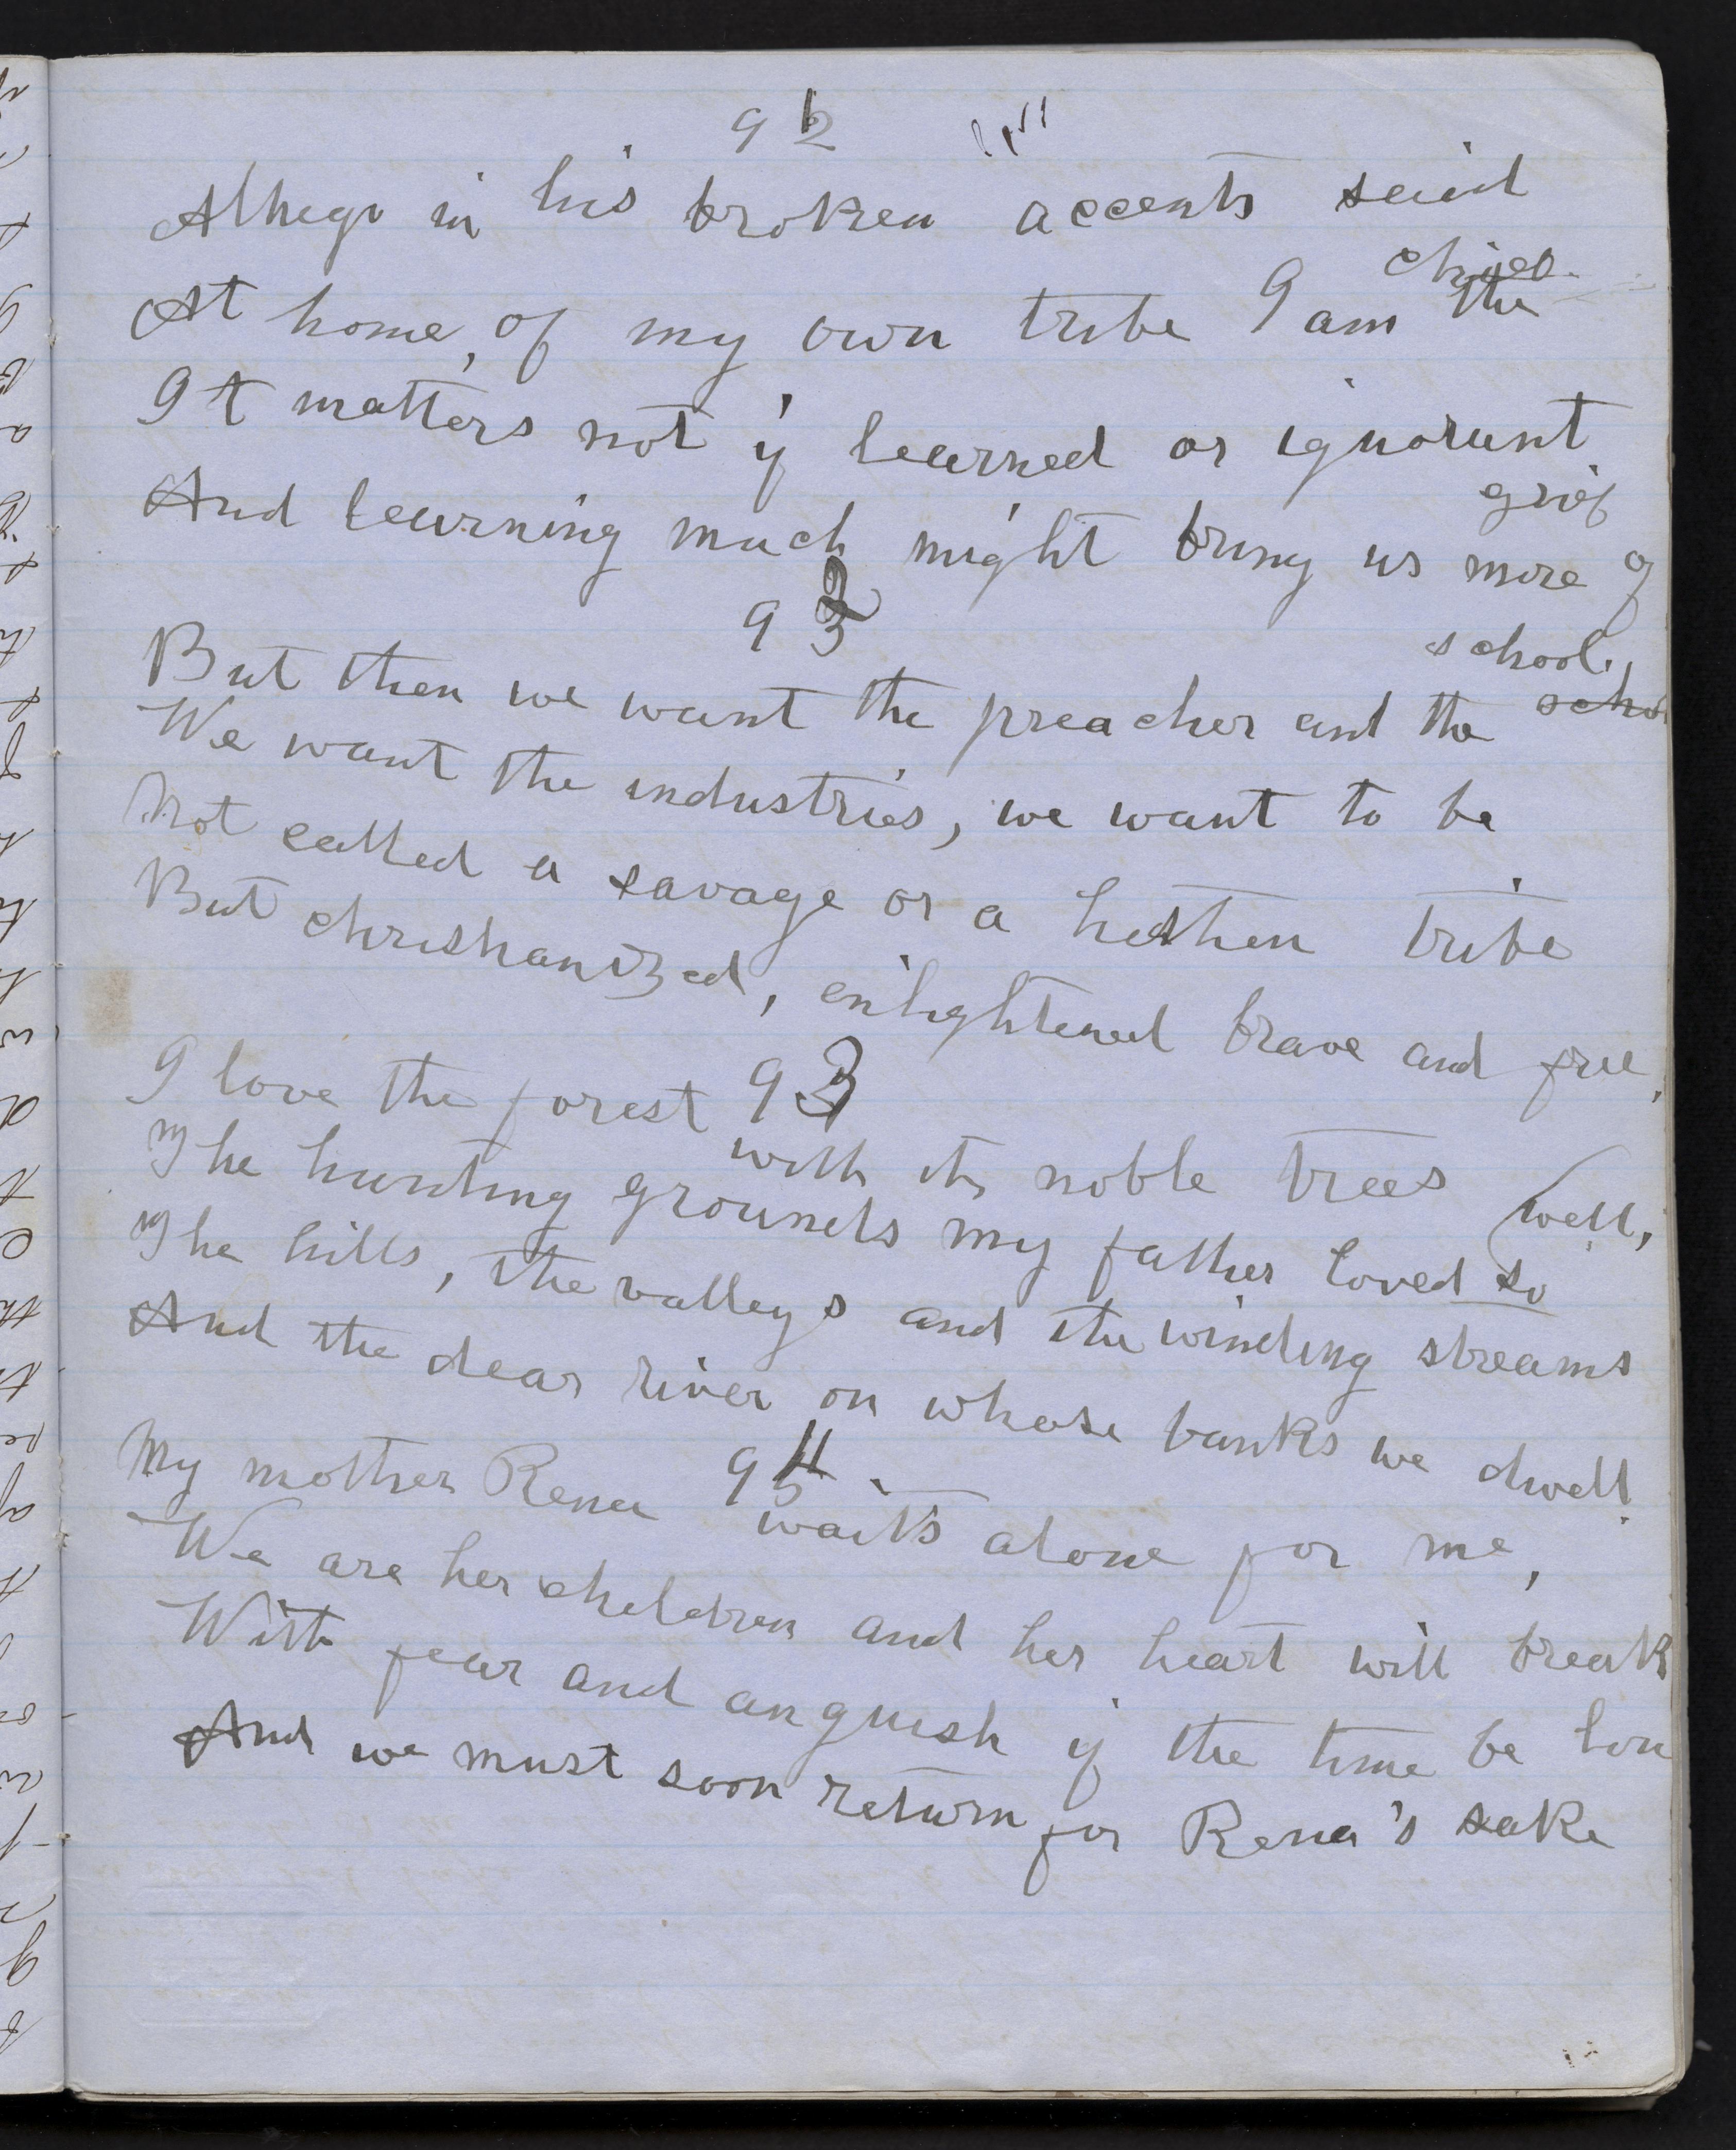 91
Athego in his broken accents said
At home, of my own tribe I am the chief
It matters not if learned or ignorant
And learning much might bring us more of grief
92
But then we want the preacher and the school,
We want the industries, we want to be
Not called a savage or a heathen tribe
But christianized, enlightened brave and free,
93
I love the forest with its noble trees
The hunting grounds my father loved so well,
The hills, the valleys and the winding streams
And the dear river on whose banks we dwell.
94
My mother Rena waits alone for me,
We are her children and her heart will break
With fear and anguish if the time be lon
And we must soon return for Rena's sake